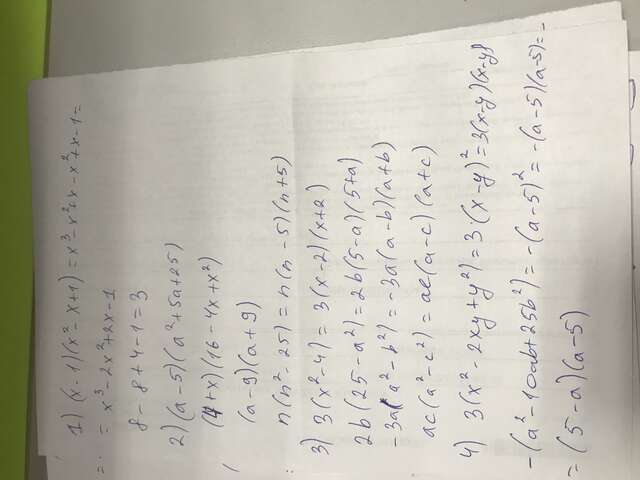 1) (x-1)(x²-x+1) = x³-x²+x-x²+x-1=
= x³-2x²+2x-1
8-8+4-1=3
2) (a-5)(a²+5a+25)
(4+x)(16-4x+x²)
(a-9)(a+9)
n(n²-25) = n(n-5)(n+5)
3) 3(x²-4) = 3(x-2)(x+2)
2b(25-a²)=2b(5-a)(5+a)
-3a(a²-b²)=-3a(a-b)(a+b)
ac(a²-c²) = ac(a-c)(a+c)
4) 3(x²-2xy+y²)=3·(x-y)²=3(x-y)(x-y)
-(a²-10ab+25b²)=-(a-5)²=-(a-5)(a-5)=-
=(5-a)(a-5)